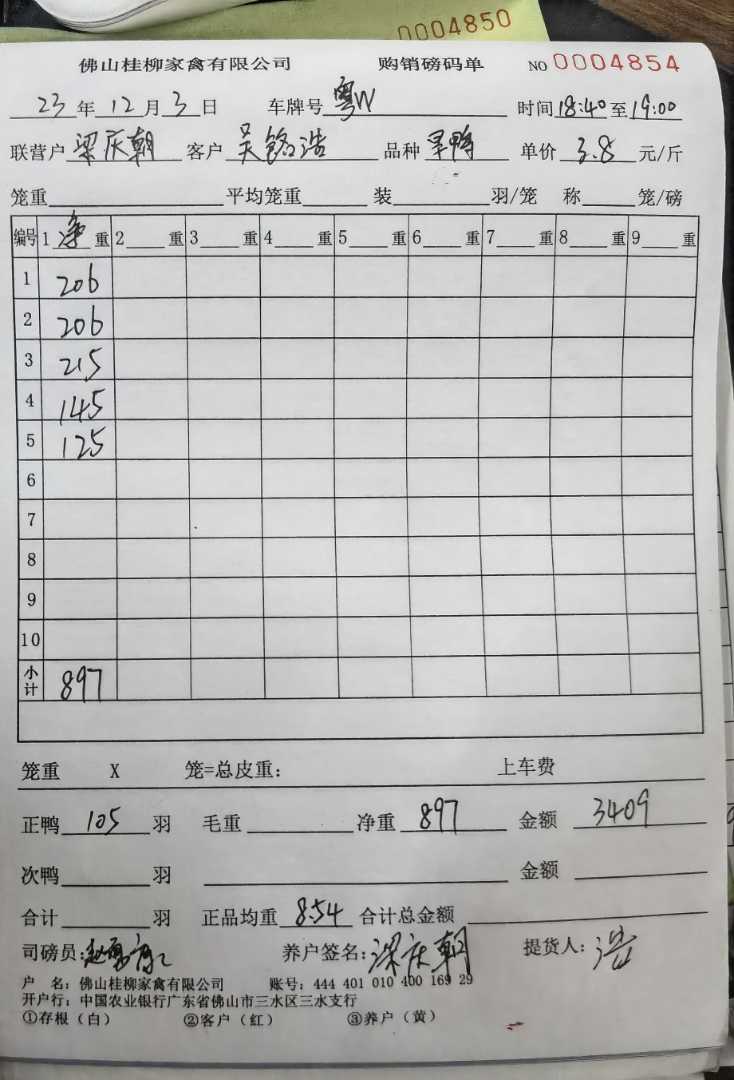 0004850
佛山桂柳家禽有限公司 购销磅码单 NO 0004854
23年12月3日 车牌号 粤W 时间18:40至19:00
联营户 梁庆朝 客户 吴铭浩 品种 旱鸭 单价 3.8 元/斤
笼重 平均笼重 装 羽/笼 称 笼/磅
编号 1 净 重 2 重 3 重 4 重 5 重 6 重 7 重 8 重 9 重
1 206
2 206
3 215
4 145
5 125
6
7
8
9
10
小计 897
笼重 X 笼=总皮重: 上车费
正鸭 105 羽 毛重 净重 897 金额 3409
次鸭 羽 金额
合计 羽 正品均重 8.54 合计总金额
司磅员: 养户签名: 梁庆朝 提货人: 浩
户 名: 佛山桂柳家禽有限公司 账号: 444 401 010 400 169 29
开户行: 中国农业银行广东省佛山市三水区三水支行
①存根(白) ②客户(红) ③养户(黄)